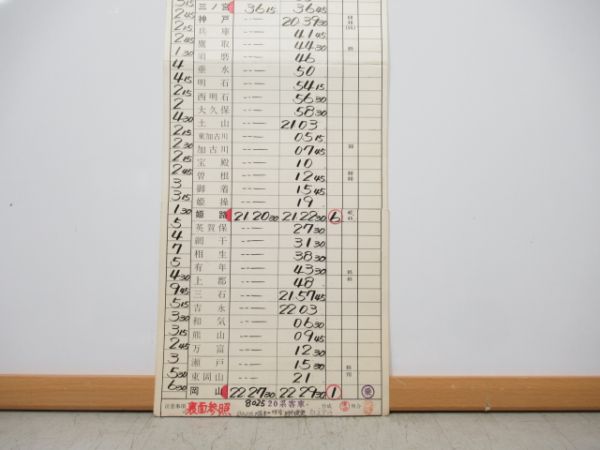 3 15 三ノ宮 36 15 36 45
2 45 神戸 20 39 30
2 15 兵庫 41 45
2 45 鷹取 44 30
1 30 須磨 46
4 垂水 50
4 15 明石 54 15
2 15 西明石 56 30
2 大久保 58 30
4 30 土山 21 03
2 15 東加古川 05 15
2 30 加古川 07 45
2 15 宝殿 10
2 45 曽根 12 45
3 御着 15 45
3 15 姫操 19
1 30 姫路 21 20 30 21 22 30 6
5 英賀保 27 30
4 網干 31 30
7 相生 38 30
5 有年 43 30
4 30 上郡 48
9 45 三石 21 57 45
5 15 吉永 22 03
3 30 和気 06 30
3 15 熊山 09 45
2 45 万富 12 30
3 瀬戸 15 30
5 30 東岡山 21
6 30 岡山 22 27 30 22 29 30 1
注意事項 裏面参照 8025 20系客車